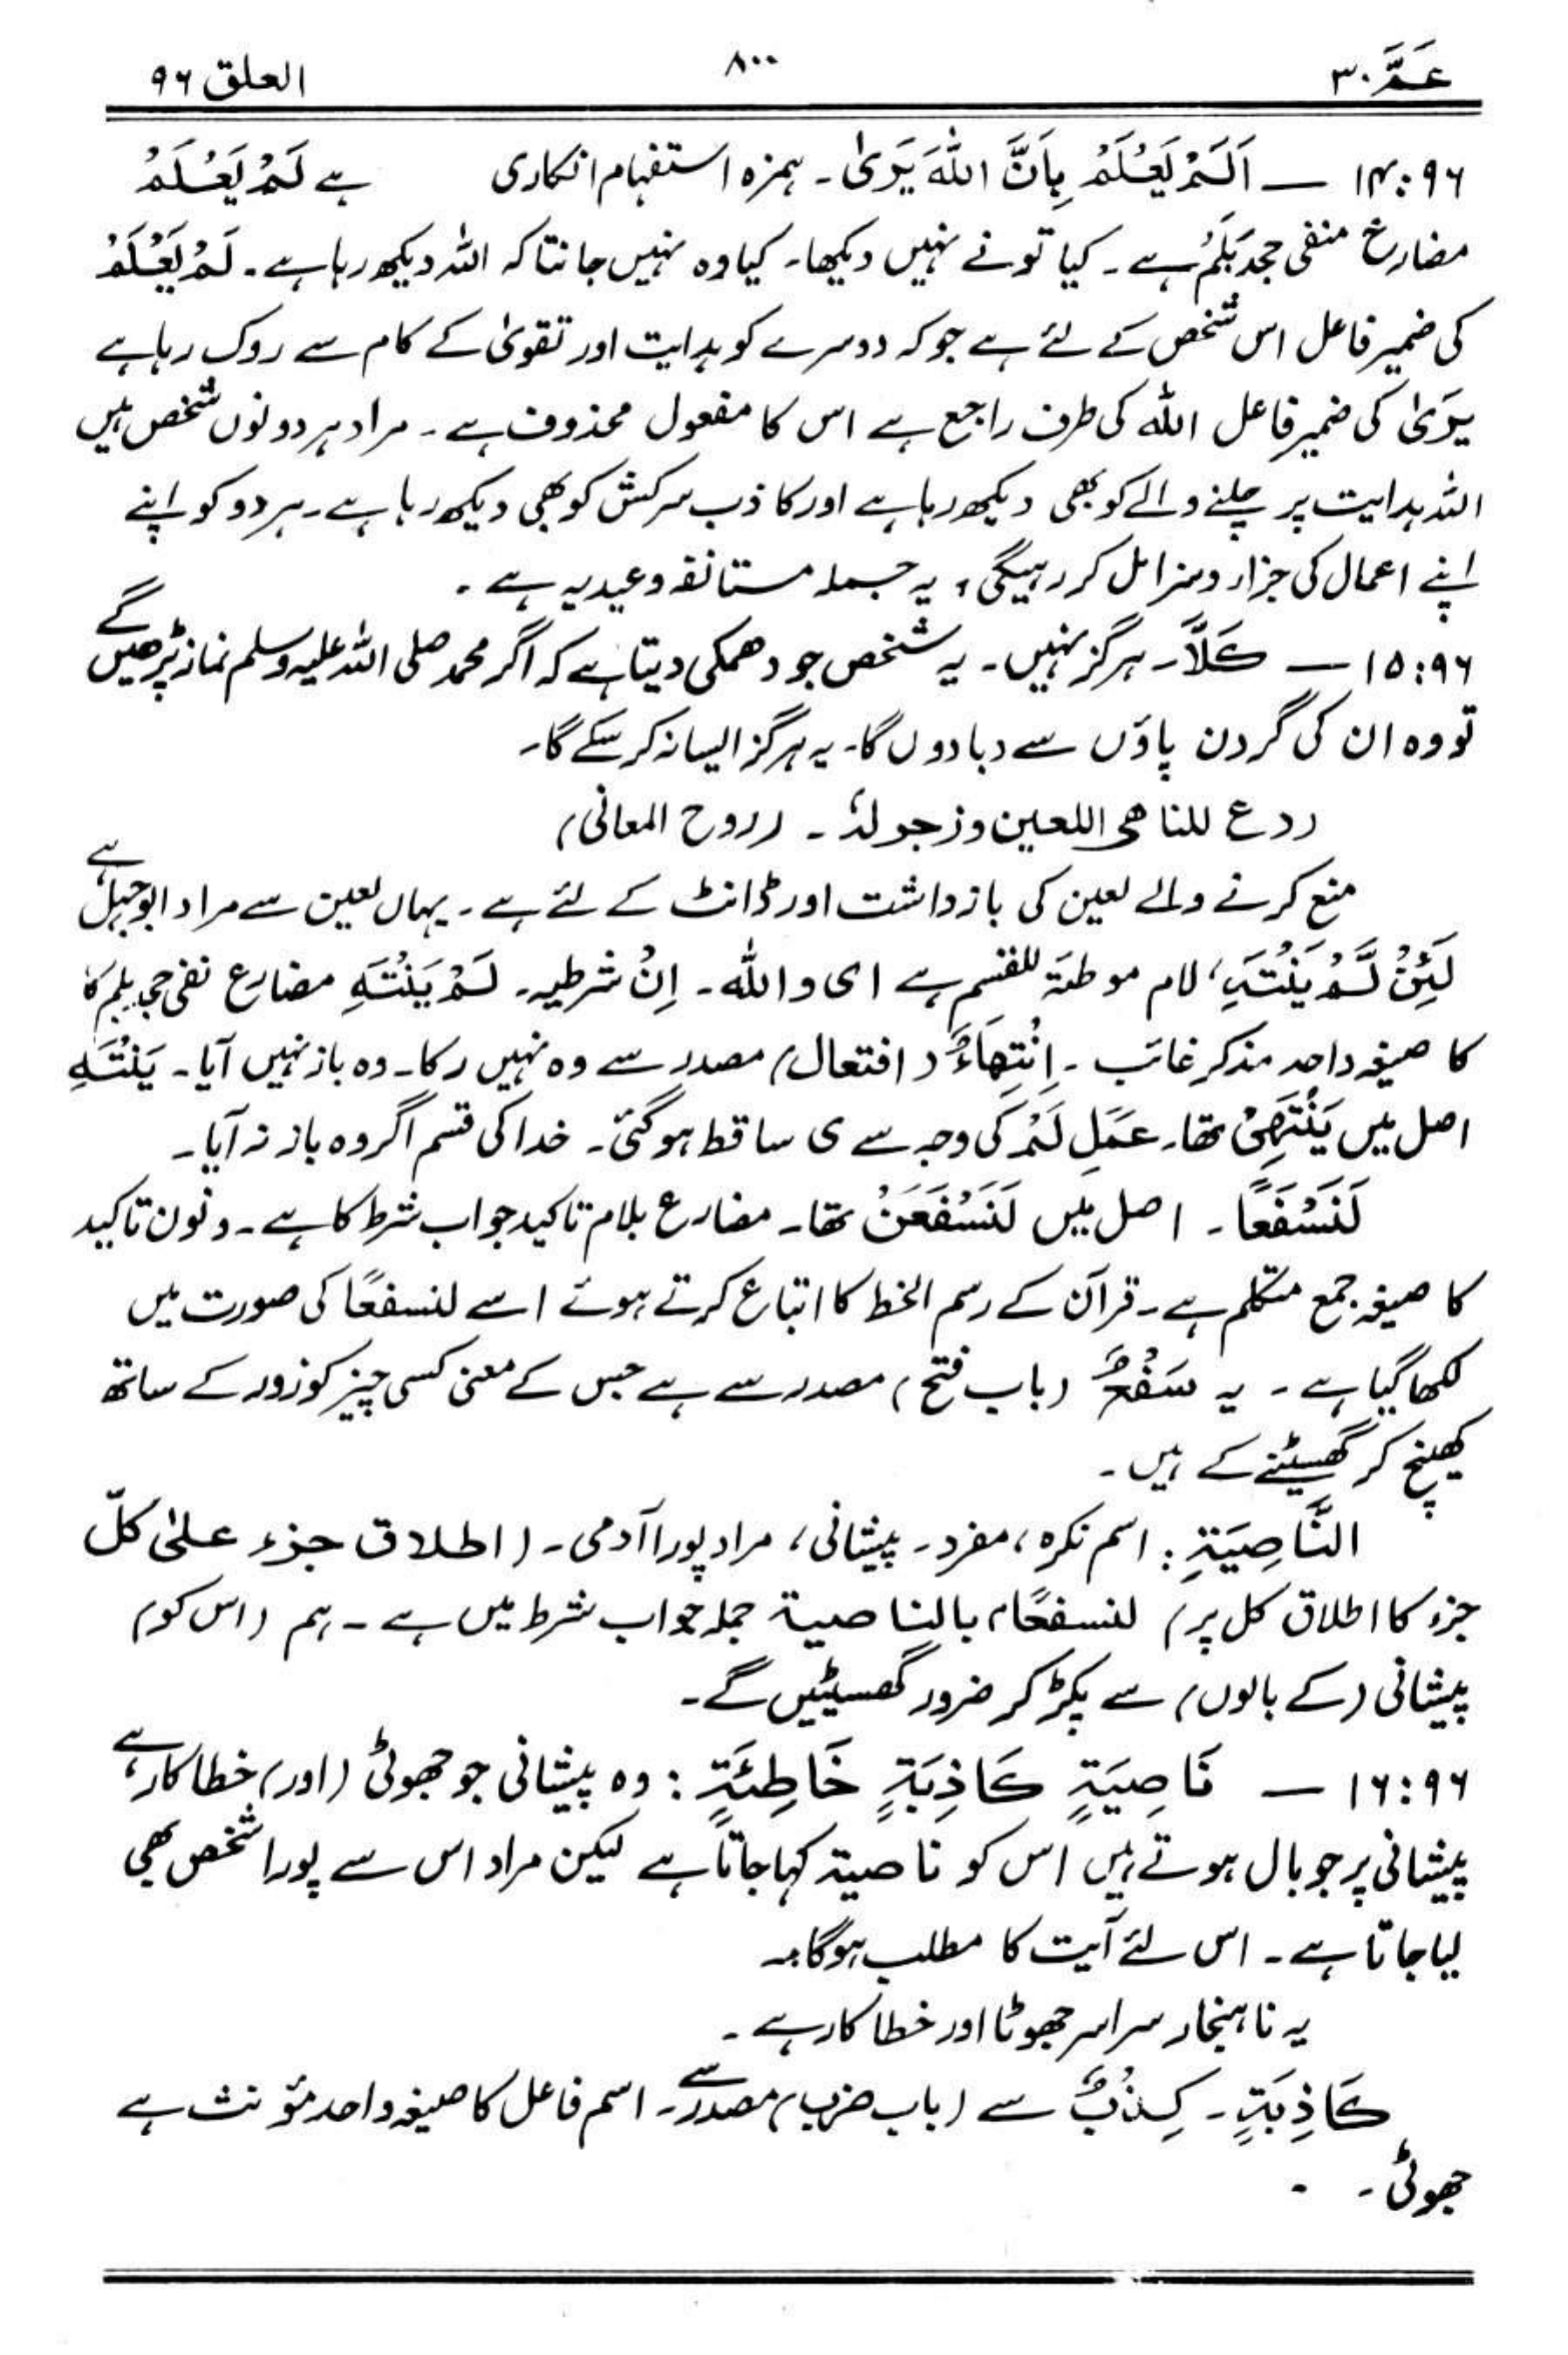 عَمَّ ۳۰ ۸۰۰ العلق ۹۶
۹۶:۱۴ — اَلَمْ يَعْلَمْ بِاَنَّ اللّٰهَ يَرٰى۔ ہمزہ استفہام انکاری ہے لَمْ يَعْلَمْ
مضارع منفی جحد بَلَمْ ہے۔ کیا تو نے نہیں دیکھا۔ کیا وہ نہیں جانتا کہ اللہ دیکھ رہا ہے۔ لَمْ يَعْلَمْ
کی ضمیر فاعل اس شخص کے لئے ہے جو کہ دوسرے کو ہدایت اور تقویٰ کے کام سے روک رہا ہے
يَرٰى کی ضمیر فاعل اللہ کی طرف راجع ہے اس کا مفعول محذوف ہے۔ مراد ہر دو نوں شخص ہیں
اللہ ہدایت پر چلنے والے کو بھی دیکھ رہا ہے اور کاذب سرکش کو بھی دیکھ رہا ہے۔ ہر دو کو اپنے
اپنے اعمال کی جزار و سزا مل کر رہیگی، یہ جملہ مستانفہ وعیدیہ ہے۔
۹۶:۱۵ — كَلَّا۔ ہرگز نہیں۔ یہ شخص جو دھمکی دیتا ہے کہ اگر محمد صلی اللہ علیہ وسلم نماز پڑھیں گے
تو وہ ان کی گردن پاؤں سے دبا دوں گا۔ یہ ہرگز ایسا نہ کر سکے گا۔
ردع للناهی اللعین وزجر لہٗ۔ (روح المعانی)
منع کرنے والے لعین کی باز داشت اور ڈانٹ کے لئے ہے۔ یہاں لعین سے مراد ابو جہل ہے
لَئِنْ لَّمْ يَنْتَهِ، لام موطئۃ للقسم ہے ای واللہ۔ اِنْ شرطیہ۔ لَمْ يَنْتَهِ مضارع نفی جحد بلم کا
کا صیغہ واحد مذکر غائب۔ اِنْتِهَاءٌ (افتعال) مصدر سے وہ نہیں رکا۔ وہ باز نہیں آیا۔ يَنْتَهِ
اصل میں يَنْتَهِیْ تھا۔ عَمَلِ لَمْ کی وجہ سے ی ساقط ہو گئی۔ خدا کی قسم اگر وہ باز نہ آیا۔
لَنَسْفَعًا۔ اصل میں لَنَسْفَعَنْ تھا۔ مضارع بلام تاکید جواب شرط کا ہے۔ و نون تاکید
کا صیغہ جمع متکلم ہے۔ قرآن کے رسم الخط کا اتباع کرتے ہوئے اسے لنسفعًا کی صورت میں
لکھا گیا ہے۔ یہ سَفْعٌ (باب فتح) مصدر سے ہے جس کے معنی کسی چیز کو زور کے ساتھ
کھینچ کر گھسیٹنے کے ہیں۔
النَّاصِيَةِ: اسم نکرہ، مفرد۔ پیشانی، مراد پورا آدمی۔ (اطلاق جزء علیٰ کلّ
جزء کا اطلاق کل پر) لنسفعًا، بالناصیة جملہ جواب شرط میں ہے۔ ہم (اس کو)
پیشانی (کے بالوں) سے پکڑ کر ضرور گھسیٹیں گے۔
۹۶:۱۶ — نَاصِيَةٍ كَاذِبَةٍ خَاطِئَةٍ: وہ پیشانی جو جھوٹی (اور) خطا کار ہے،
پیشانی پر جو بال ہوتے ہیں اس کو ناصیۃ کہا جاتا ہے لیکن مراد اس سے پورا شخص بھی
لیا جاتا ہے۔ اس لئے آیت کا مطلب ہوگا:۔
یہ ناہنجار سراسر جھوٹا اور خطا کار ہے۔
كَاذِبَةٍ۔ كِذْبٌ سے (باب ضرب) مصدر سے۔ اسم فاعل کا صیغہ واحد مؤنث ہے
جھوٹی۔